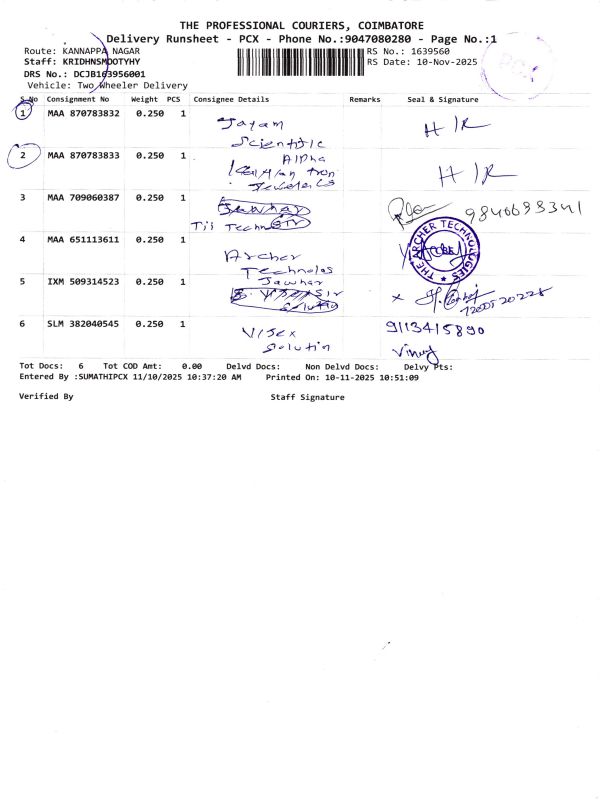 THE PROFESSIONAL COURIERS, COIMBATORE
Delivery Runsheet - PCX - Phone No.:9047080280 - Page No.:1
Route: KANNAPPA NAGAR
RS No.: 1639560
Staff: KRIDHNSMOOTYHY
RS Date: 10-Nov-2025
DRS No.: DCJB163956001
Vehicle: Two Wheeler Delivery
PCX
S.No Consignment No Weight PCS Consignee Details Remarks Seal & Signature
1 MAA 870783832 0.250 1 Jayam Scientific H/R
2 MAA 870783833 0.250 1 Alpha H/R
3 MAA 709060387 0.250 1 Jawhar Sir 9840693341
4 MAA 651113611 0.250 1 Archer Technolos THE ARCHER TECHNOLOGIES
5 IXM 509314523 0.250 1 Jawhar Sir x
6 SLM 382040545 0.250 1 Visex Solution 9113415890
Vinay
Tot Docs: 6 Tot COD Amt: 0.00 Delvd Docs: Non Delvd Docs: Delvy Pts:
Entered By :SUMATHIPCX 11/10/2025 10:37:20 AM Printed On: 10-11-2025 10:51:09
Verified By Staff Signature